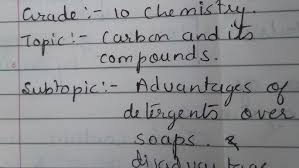 Grade:- 10 Chemistry.
Topic:- Carbon and its
compounds.
Subtopic:- Advantages of
detergents over
soaps. &